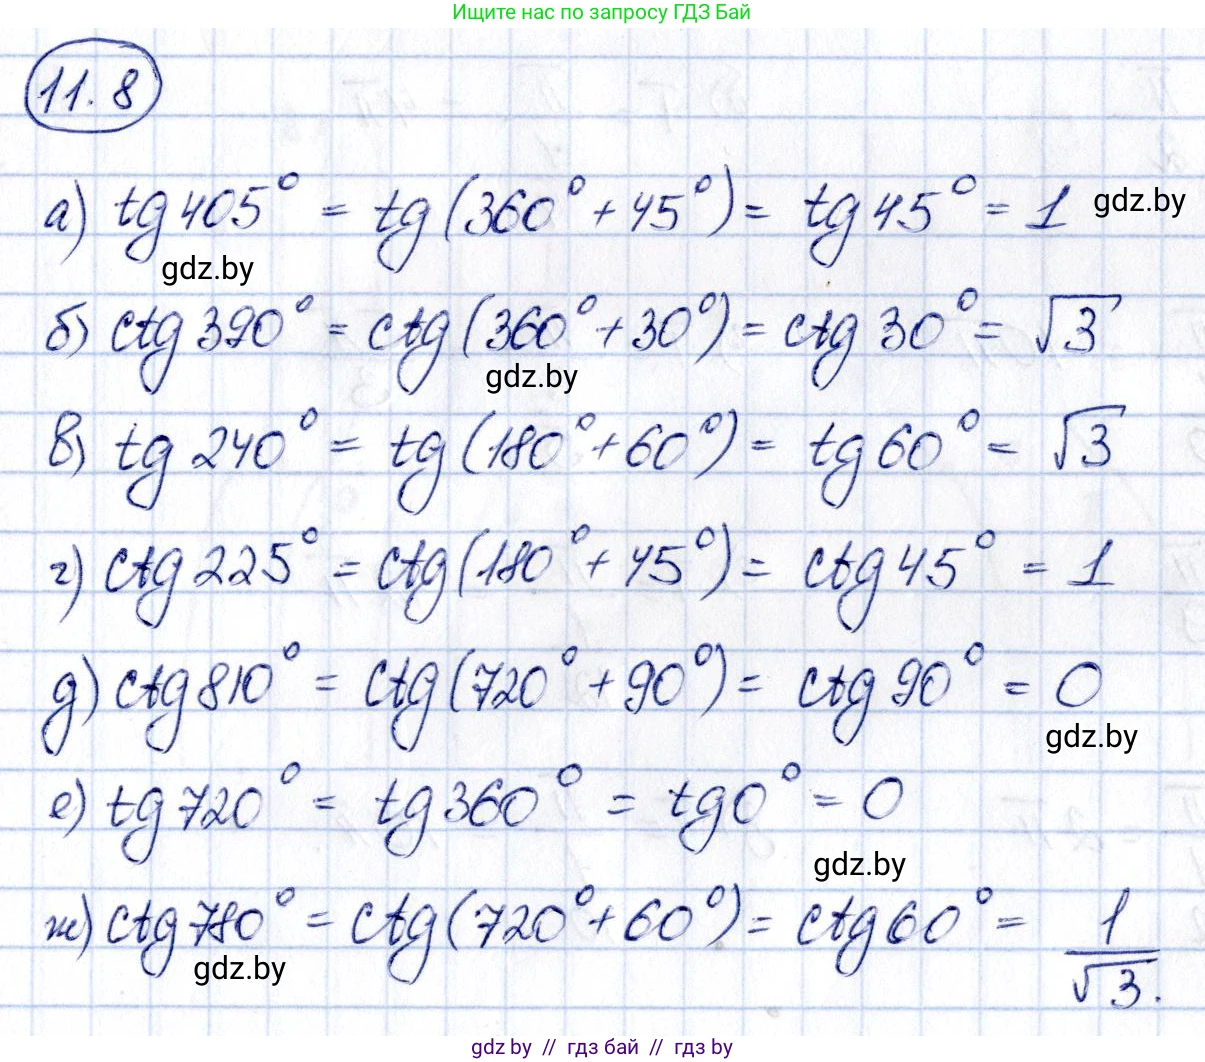 Ищите нас по запросу ГДЗ Бай
11.8
а) tg 405° = tg (360° + 45°) = tg 45° = 1 gdz.by
gdz.by
б) ctg 390° = ctg (360° + 30°) = ctg 30° = √3
gdz.by
в) tg 240° = tg (180° + 60°) = tg 60° = √3
г) ctg 225° = ctg (180° + 45°) = ctg 45° = 1
д) ctg 810° = ctg (720° + 90°) = ctg 90° = 0
gdz.by
е) tg 720° = tg 360° = tg 0° = 0
gdz.by
ж) ctg 780° = ctg (720° + 60°) = ctg 60° = 1/√3.
gdz.by
gdz by // гдз бай // гдз by